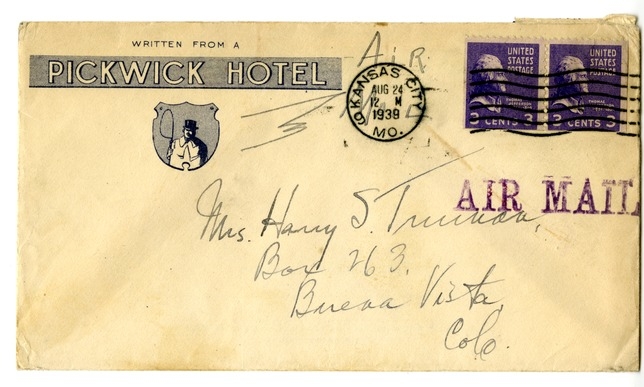 WRITTEN FROM A
PICKWICK HOTEL
AIR
KANSAS CITY
AUG 24
12 M
1939
MO.
UNITED
STATES
POSTAGE
THOMAS
JEFFERSON
3 CENTS 3
UNITED
STATES
POSTAGE
THOMAS
3 CENTS 3
AIR MAIL
Mrs. Harry S. Truman,
Box 263.
Buena Vista,
Colo.